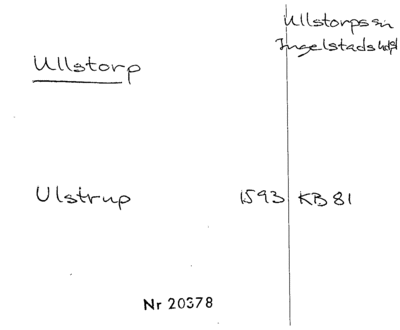 Ullstorps sn
Ingelstads hd
Ullstorp
Ulstrup 1593 KB 81
Nr 20378